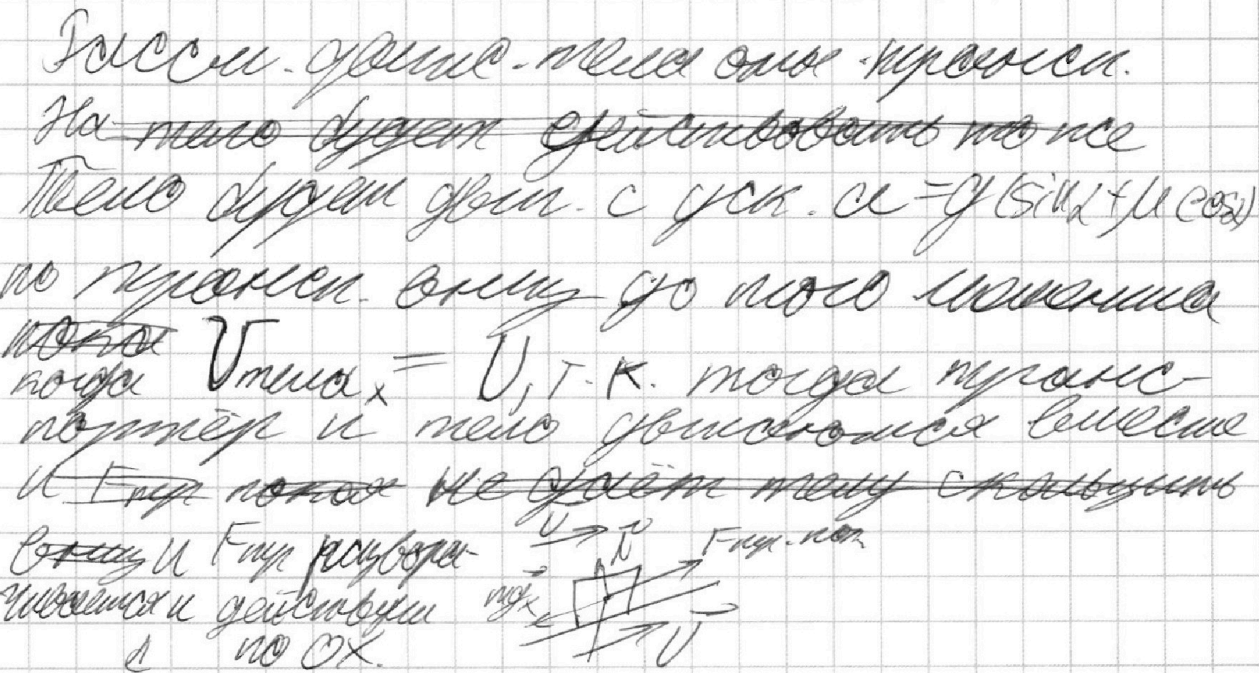 Рассм. движ. тела отн. трансп.
На тело будет действовать то же
Тело будет двиг. с уск. a = g(sinα + μ cosα)
по трансп. вниз до того момента
пока
когда Vтела x = U, т.к. тогда транс-
портёр и тело двигаются вместе
и Fтр покоя не даёт телу скользить
вниз и Fтр развора-
чивается и действует
по OX.
U N Fтр.пок
mgx
U